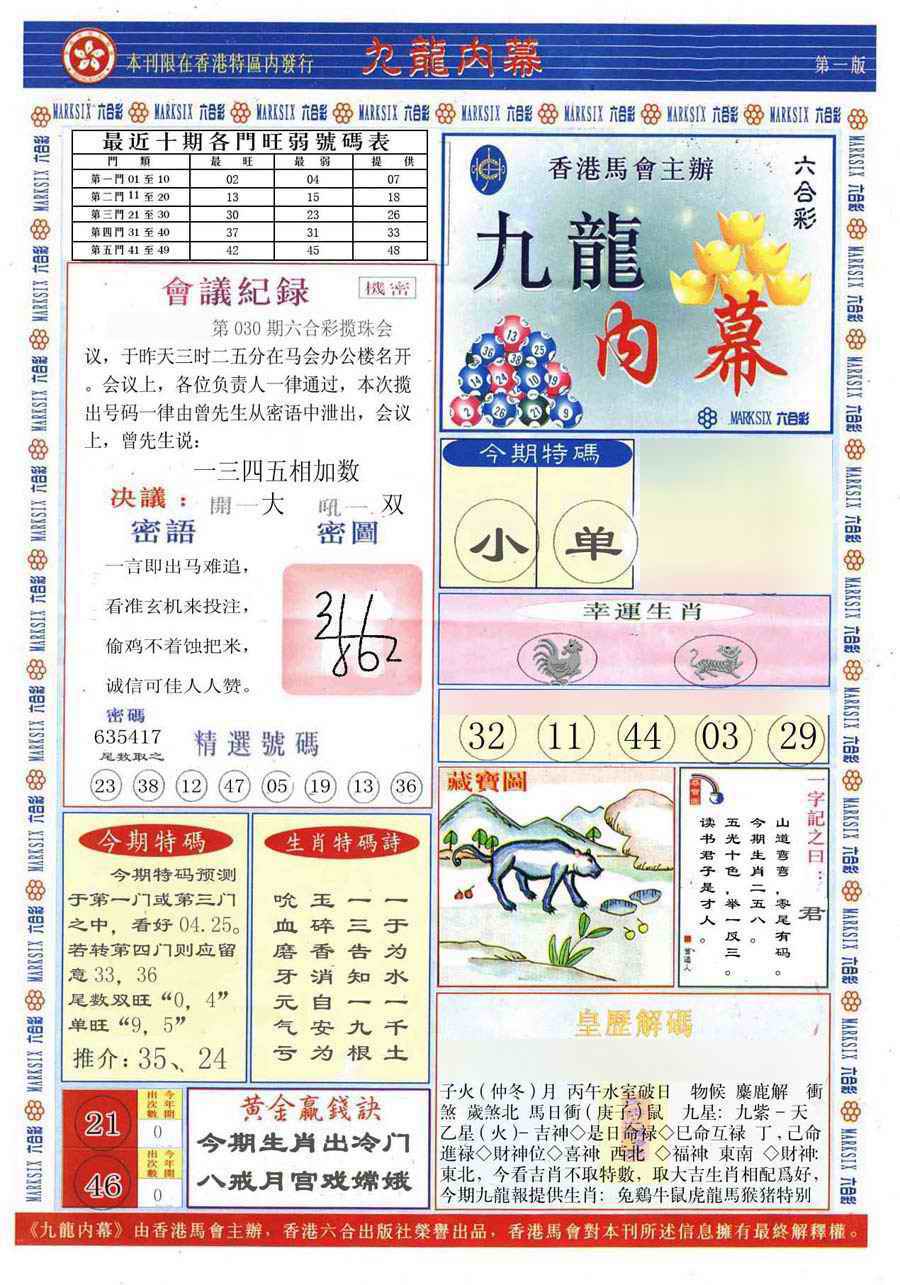 本刊限在香港特區内發行
九龍内幕
第一版
最近十期各門旺弱號碼表
門 類 最 旺 最 弱 提 供
第一門 01 至 10 02 04 07
第二門 11 至 20 13 15 18
第三門 21 至 30 30 23 26
第四門 31 至 40 37 31 33
第五門 41 至 49 42 45 48
會議紀録
機密
第 030 期六合彩攬珠会
议，于昨天三时二五分在马会办公楼名开
。会议上，各位负责人一律通过，本次揽
出号码一律由曾先生从密语中泄出，会议
上，曾先生说：
一三四五相加数
决議：開一大 吼一 双
密語
密圖
一言即出马难追，
看准玄机来投注，
偷鸡不着蚀把米，
诚信可佳人人赞。
密碼
635417
尾数取之
精選號碼
23 38 12 47 05 19 13 36
今期特碼
今期特码预测
于第一门或第三门
之中，看好 04.25。
若转第四门则应留
意 33，36
尾数双旺“0，4”
单旺“9，5”
推介：35、24
生肖特碼詩
一于为水一千土
一三告知一九根
玉碎香消自安为
吮血磨牙元气亏
21
出次數 今年開
0
46
出次數 今年開
0
黃金贏錢訣
今期生肖出冷门
八戒月宫戏嫦娥
香港馬會主辦
六合彩
九龍
内幕
13
36 38 25
14 24 10 19
2 26 21 9
MARKSIX 六合彩
今期特碼
小 单
幸運生肖
32 11 44 03 29
藏寶圖
一字記之曰：君
山道弯弯，零尾有码。
今期生肖二五八。
五光十色，举一反三。
读书君子是才人。
皇歷解碼
子火（仲冬）月 丙午水室破日 物候 麋鹿解 衝
煞 歲煞北 馬日衝（庚子）鼠 九星：九紫－天
乙星（火）－吉神◇是日命禄◇巳命互禄 丁，己命
進禄◇財神位◇喜神 西北 ◇福神 東南 ◇財神:
東北，今看吉肖不取特數，取大吉生肖相配爲好，
今期九龍報提供生肖：兔鷄牛鼠虎龍馬猴猪特别
《九龍内幕》由香港馬會主辦，香港六合出版社榮譽出品，香港馬會對本刊所述信息擁有最終解釋權。